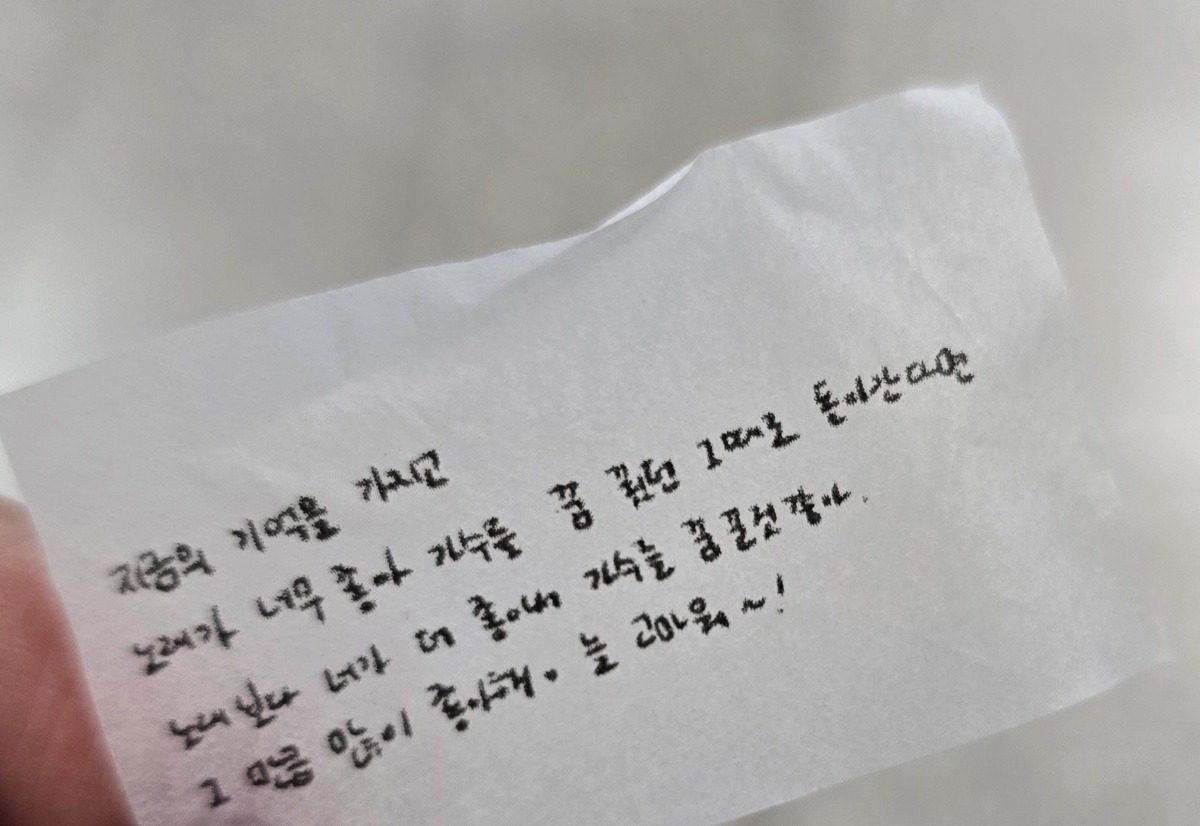 지금의 기억을 가지고
노래가 너무 좋아 가수를 꿈 꿨던 그때로 돌아간다면
노래보다 너가 더 좋아서 가수를 꿈 꿀것 같아.
그 만큼 많이 좋아해. 늘 고마워~!